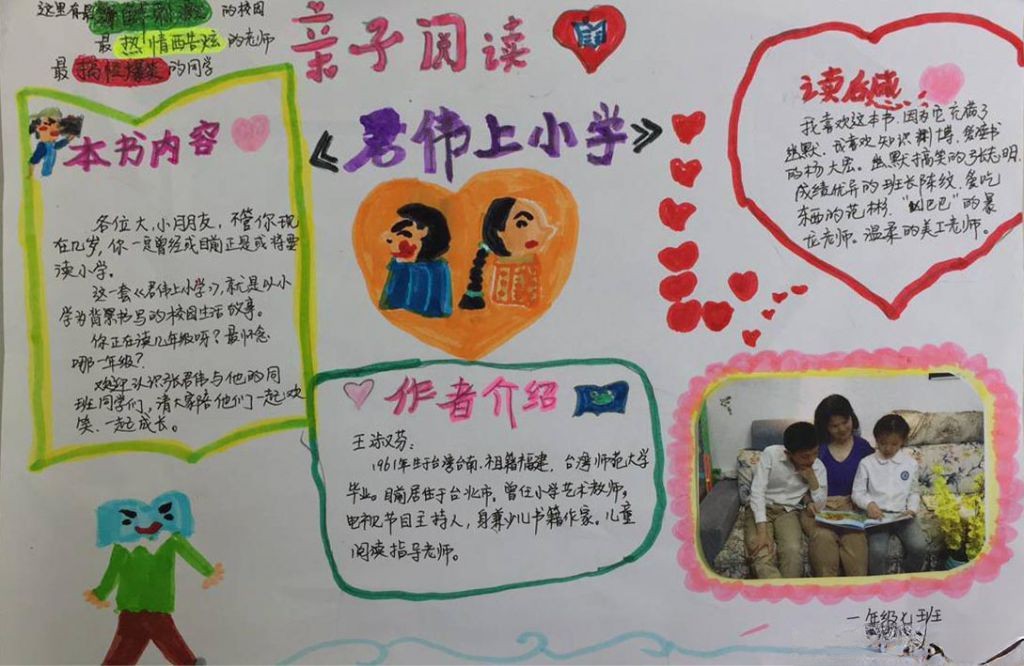 这里有最的校园
最热情西告炫的老师
最搞怪爆笑的同学
亲子阅读
《君伟上小学》
本书内容
各位大、小朋友，不管你现
在几岁，你一定曾经或目前正是或将要
读小学。
这一套《君伟上小学》，就是以小
学为背景书写的校园生活故事。
你正在读几年级呀？最怀念
哪一年级？
欢迎认识张君伟与他的同
班同学们，请大家陪他们一起欢
笑、一起成长。
读后感：
我喜欢这本书，因为它充满了
幽默，我喜欢知识渊博、爱读书
的杨大宏。幽默搞笑的张志明，
成绩优异的班长陈纹，爱吃
东西的范彬，“凶巴巴”的暴
龙老师。温柔的美工老师。
作者介绍
王淑芬：
1961年生于台湾台南，祖籍福建，台湾师范大学
毕业。目前居住于台北市，曾任小学艺术教师，
电视节目主持人，身兼少儿书籍作家。儿童
阅读指导老师。
一年级七班